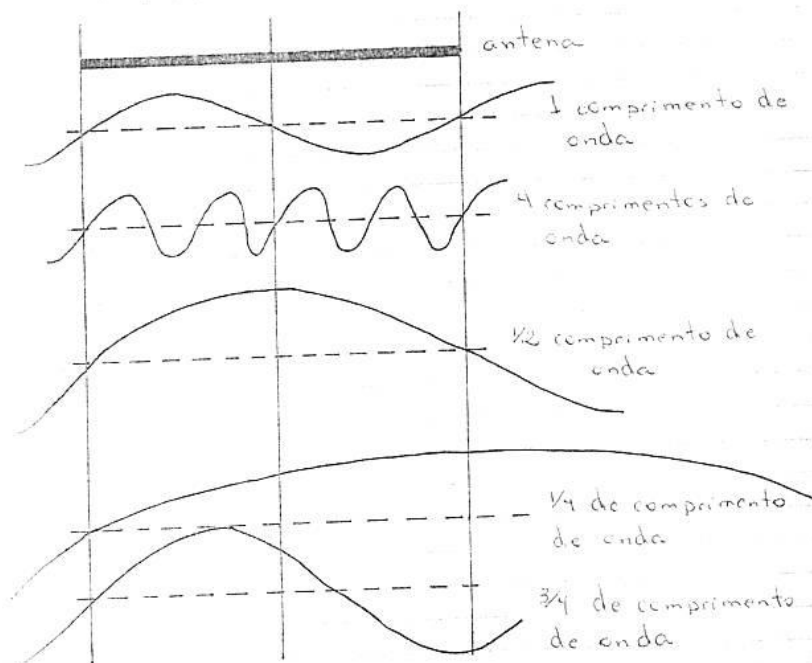 antena
1 comprimento de
onda
4 comprimentos de
onda
1/2 comprimento de
onda
1/4 de comprimento
de onda
3/4 de comprimento
de onda